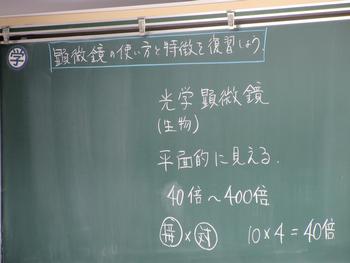 学 顕微鏡の使い方と特徴を復習しよう。
光学顕微鏡
(生物)
平面的に見える.
40倍〜400倍
接×対 10×4=40倍